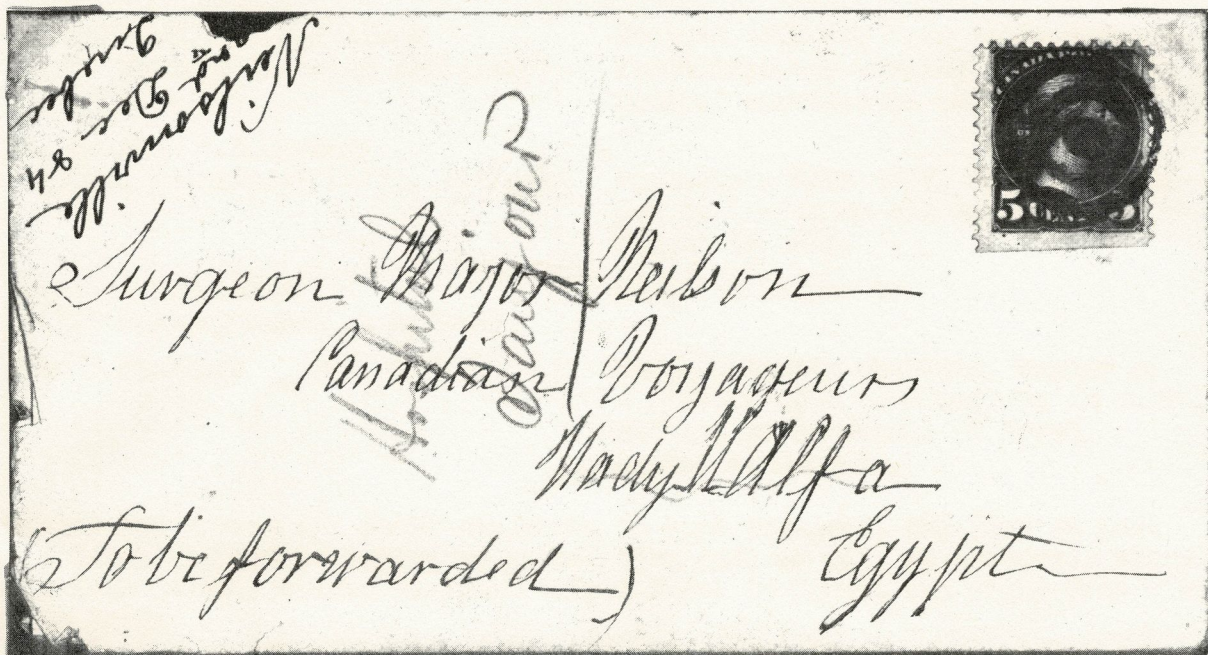 Neilsonville
2nd Dec 84
Quebec
CANADA
5 CENTS 5
Surgeon Major Neilson
Canadian Voyageurs
Wady Halfa
Egypt
(To be forwarded)